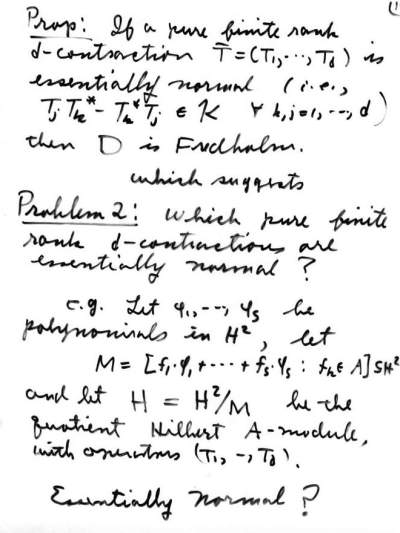 (1
Prop: If a pure finite rank
d-contraction T̄ = (T₁, ···, T_d) is
essentially normal (i.e.,
T_j T_k* - T_k* T_j ∈ K ∀ k,j=1, ··, d)
then D is Fredholm.
which suggests
Problem 2: Which pure finite
rank d-contractions are
essentially normal?
e.g. Let φ₁, ··, φ_s be
polynomials in H², let
M = [f₁·φ₁ + ··· + f_s·φ_s : f_k ∈ A] ⊆ H²
and let H = H²/M be the
quotient Hilbert A-module,
with operators (T₁, -, T_d).
Essentially normal?